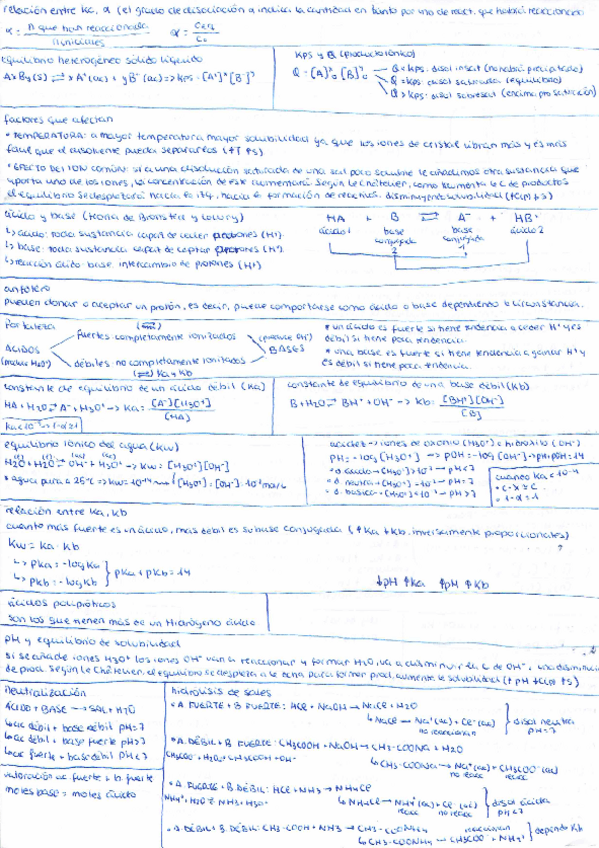 relación entre kc, α (el grado de disociación α indica la cantidad en tanto por uno de react. que habrá reaccionado
α = n que han reaccionado / n iniciales    α = Creq / Co
equilibrio heterogéneo sólido líquido
AxBy(s) ⇄ xA⁺(ac) + yB⁻(ac) => kps = [A⁺]ˣ [B⁻]ʸ
kps y Q (producto iónico)
Q = [A]ˣ₀ [B]ʸ₀
Q < kps: disol insat (no habrá precipitado)
Q = kps: disol saturada (equilibrio)
Q > kps: disol sobresat (encima pto saturación)
factores que afectan
* TEMPERATURA: a mayor temperatura mayor solubilidad ya que los iones de cristal vibran más y es más
fácil que el disolvente pueda separarlos (↑T ↑s)
* EFECTO DEL ION COMÚN: si a una disolución saturada de una sal poco soluble le añadimos otra sustancia que
aporta uno de los iones, la concentración de este aumentará. Según Le Châtelier, como aumenta la C de productos
el equilibrio se desplazará hacia la izq, hacia la formación de reactivos, disminuyendo solubilidad
ácido y base (teoría de Bronsted y Lowry)
↳ ácido: toda sustancia capaz de ceder protones (H⁺).
↳ base: toda sustancia capaz de captar protones (H⁺).
↳ reacción ácido-base: intercambio de protones (H⁺)
HA + B ⇄ A⁻ + HB⁺
ácido 1 base conjugada 2 base conjugada 1 ácido 2
anfótero
pueden donar o aceptar un protón, es decir, puede comportarse como ácido o base dependiendo circunstancia.
fortaleza
ÁCIDOS
BASES
fuertes completamente ionizados
débiles no completamente ionizados
(⇄) Ka y Kb
(produce OH⁻)
(produce H₃O⁺)
* un ácido es fuerte si tiene tendencia a ceder H⁺ y es
débil si tiene poca tendencia.
* una base es fuerte si tiene tendencia a ganar H⁺ y
es débil si tiene poca tendencia.
constante de equilibrio de un ácido débil (Ka)
HA + H2O ⇄ A⁻ + H3O⁺ -> Ka = [A⁻][H3O⁺] / [HA]
constante de equilibrio de una base débil (Kb)
B + H2O ⇄ BH⁺ + OH⁻ -> Kb = [BH⁺][OH⁻] / [B]
equilibrio iónico del agua (Kw)
H2O + H2O ⇄ OH⁻ + H3O⁺ -> Kw = [H3O⁺][OH⁻]
* agua pura a 25ºC => Kw = 10⁻¹⁴ [H3O⁺] = [OH⁻] = 10⁻⁷ mol/L
acidez -> iones de oxonio (H3O⁺) e hidróxilo (OH⁻)
pH = -log[H3O⁺] -> pOH = -log[OH⁻] -> pH + pOH = 14
d. ácida -> [H3O⁺] > 10⁻⁷ -> pH < 7
d. neutra -> [H3O⁺] = 10⁻⁷ -> pH = 7
d. básica -> [H3O⁺] < 10⁻⁷ -> pH > 7
cuando Ka < 10⁻⁴
* C - x ≈ C
* 1 - α ≈ 1
relación entre Ka, Kb
cuanto más fuerte es un ácido, más débil es su base conjugada (↑Ka ↓Kb. inversamente proporcionales)
Kw = Ka · Kb
↳ pKa = -log Ka
↳ pKb = -log Kb
pKa + pKb = 14
↓pH ↑Ka ↑pH ↑Kb
ácidos polipróticos
son los que tienen más de un hidrógeno ácido
pH y equilibrio de solubilidad
si se añade iones H3O⁺ los iones OH⁻ van a reaccionar y formar H2O, va a disminuir la C de OH⁻, una disminución
de prod. Según Le Châtelier, el equilibrio se desplaza a la dcha para formar prod, aumenta la solubilidad
neutralización
ÁCIDO + BASE -> SAL + H2O
↳ ac débil + base débil pH = 7
↳ ac débil + base fuerte pH > 7
↳ ac fuerte + base débil pH < 7
valoración ac fuerte + b. fuerte
moles base = moles ácido
hidrólisis de sales
* A. FUERTE + B. FUERTE: HCl + NaOH -> NaCl + H2O
↳ NaCl -> Na⁺(ac) + Cl⁻(ac)
no reaccionan
disol neutra
pH = 7
* A. DÉBIL + B. FUERTE: CH3COOH + NaOH -> CH3-COONa + H2O
CH3COO⁻ + H2O -> CH3COOH + OH⁻
↳ CH3-COONa -> Na⁺(ac) + CH3COO⁻(ac)
no reacc reacc
* A. FUERTE + B. DÉBIL: HCl + NH3 -> NH4Cl
NH4⁺ + H2O ⇄ NH3 + H3O⁺
↳ NH4Cl -> NH4⁺(ac) + Cl⁻(ac)
reacc no reacc
disol ácida
pH < 7
* A. DÉBIL + B. DÉBIL: CH3-COOH + NH3 -> CH3-COONH4
↳ CH3-COONH4 -> CH3COO⁻ + NH4⁺
reaccionan
depende Kb